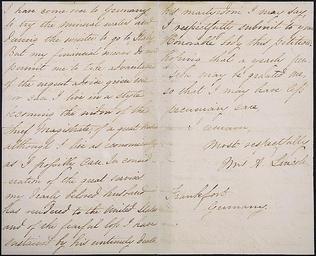 I have come over to Germany
to try the mineral waters and
during the winter to go to Italy.
But my financial means do not
permit me to take advantage
of the urgent advice given me
nor can I live in a style
becoming the widow of the
Chief Magistrate of a great Nation
although I live as economically
as I possibly can. In consid-
eration of the great services
my dearly beloved husband
has rendered to the United States
and of the fearful loss I have
sustained by his untimely death
his martyrdom, I may say,
I respectfully submit to your
Honorable body this petition
hoping that a yearly pen-
sion may be granted me,
so that I may have less
pecuniary care.
I remain,
Most respectfully
Mrs A. Lincoln
Frankfort
Germany